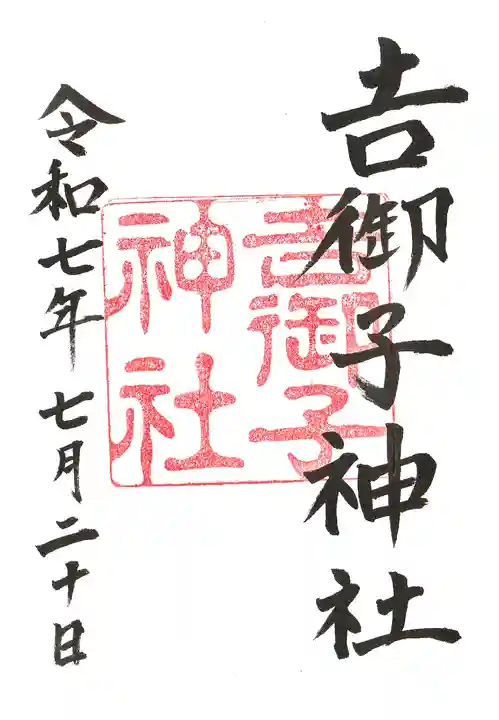 𠮷御子神社
吉御子
神社
令和七年七月二十日